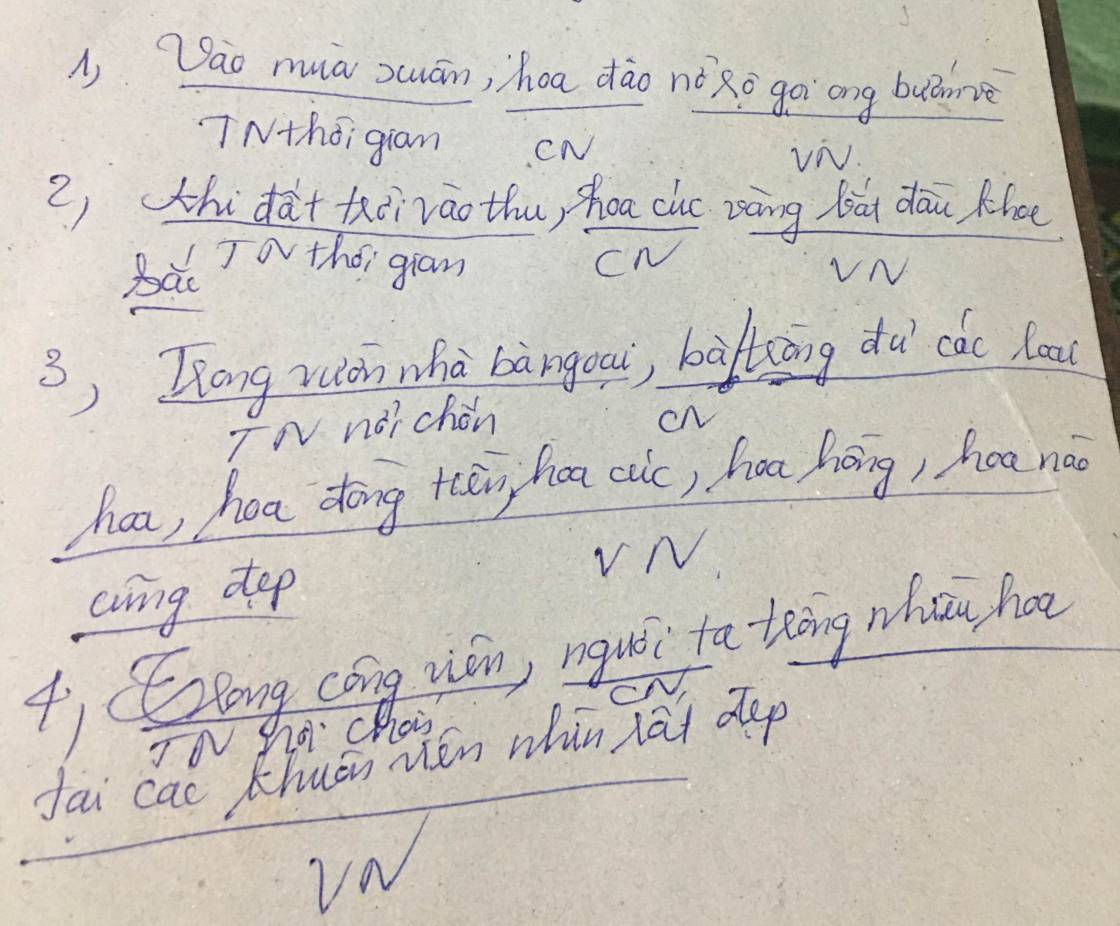 1, Vào mùa xuân, hoa đào nở rộ gọi ong bướm về
TN thời gian CN VN.
2, Khi đất trời vào thu, hoa cúc vàng bắt đầu khoe
TN thời gian CN VN
sắc
3, Trong vườn nhà bà ngoại, bà/trồng đủ các loại
TN nơi chốn CN
hoa, hoa đồng tiền, hoa cúc, hoa hồng, hoa nào
VN.
cũng đẹp
4, Trong công viên, người ta trồng nhiều hoa
TN nơi chốn CN
tại các khuôn viên nhìn rất đẹp
VN